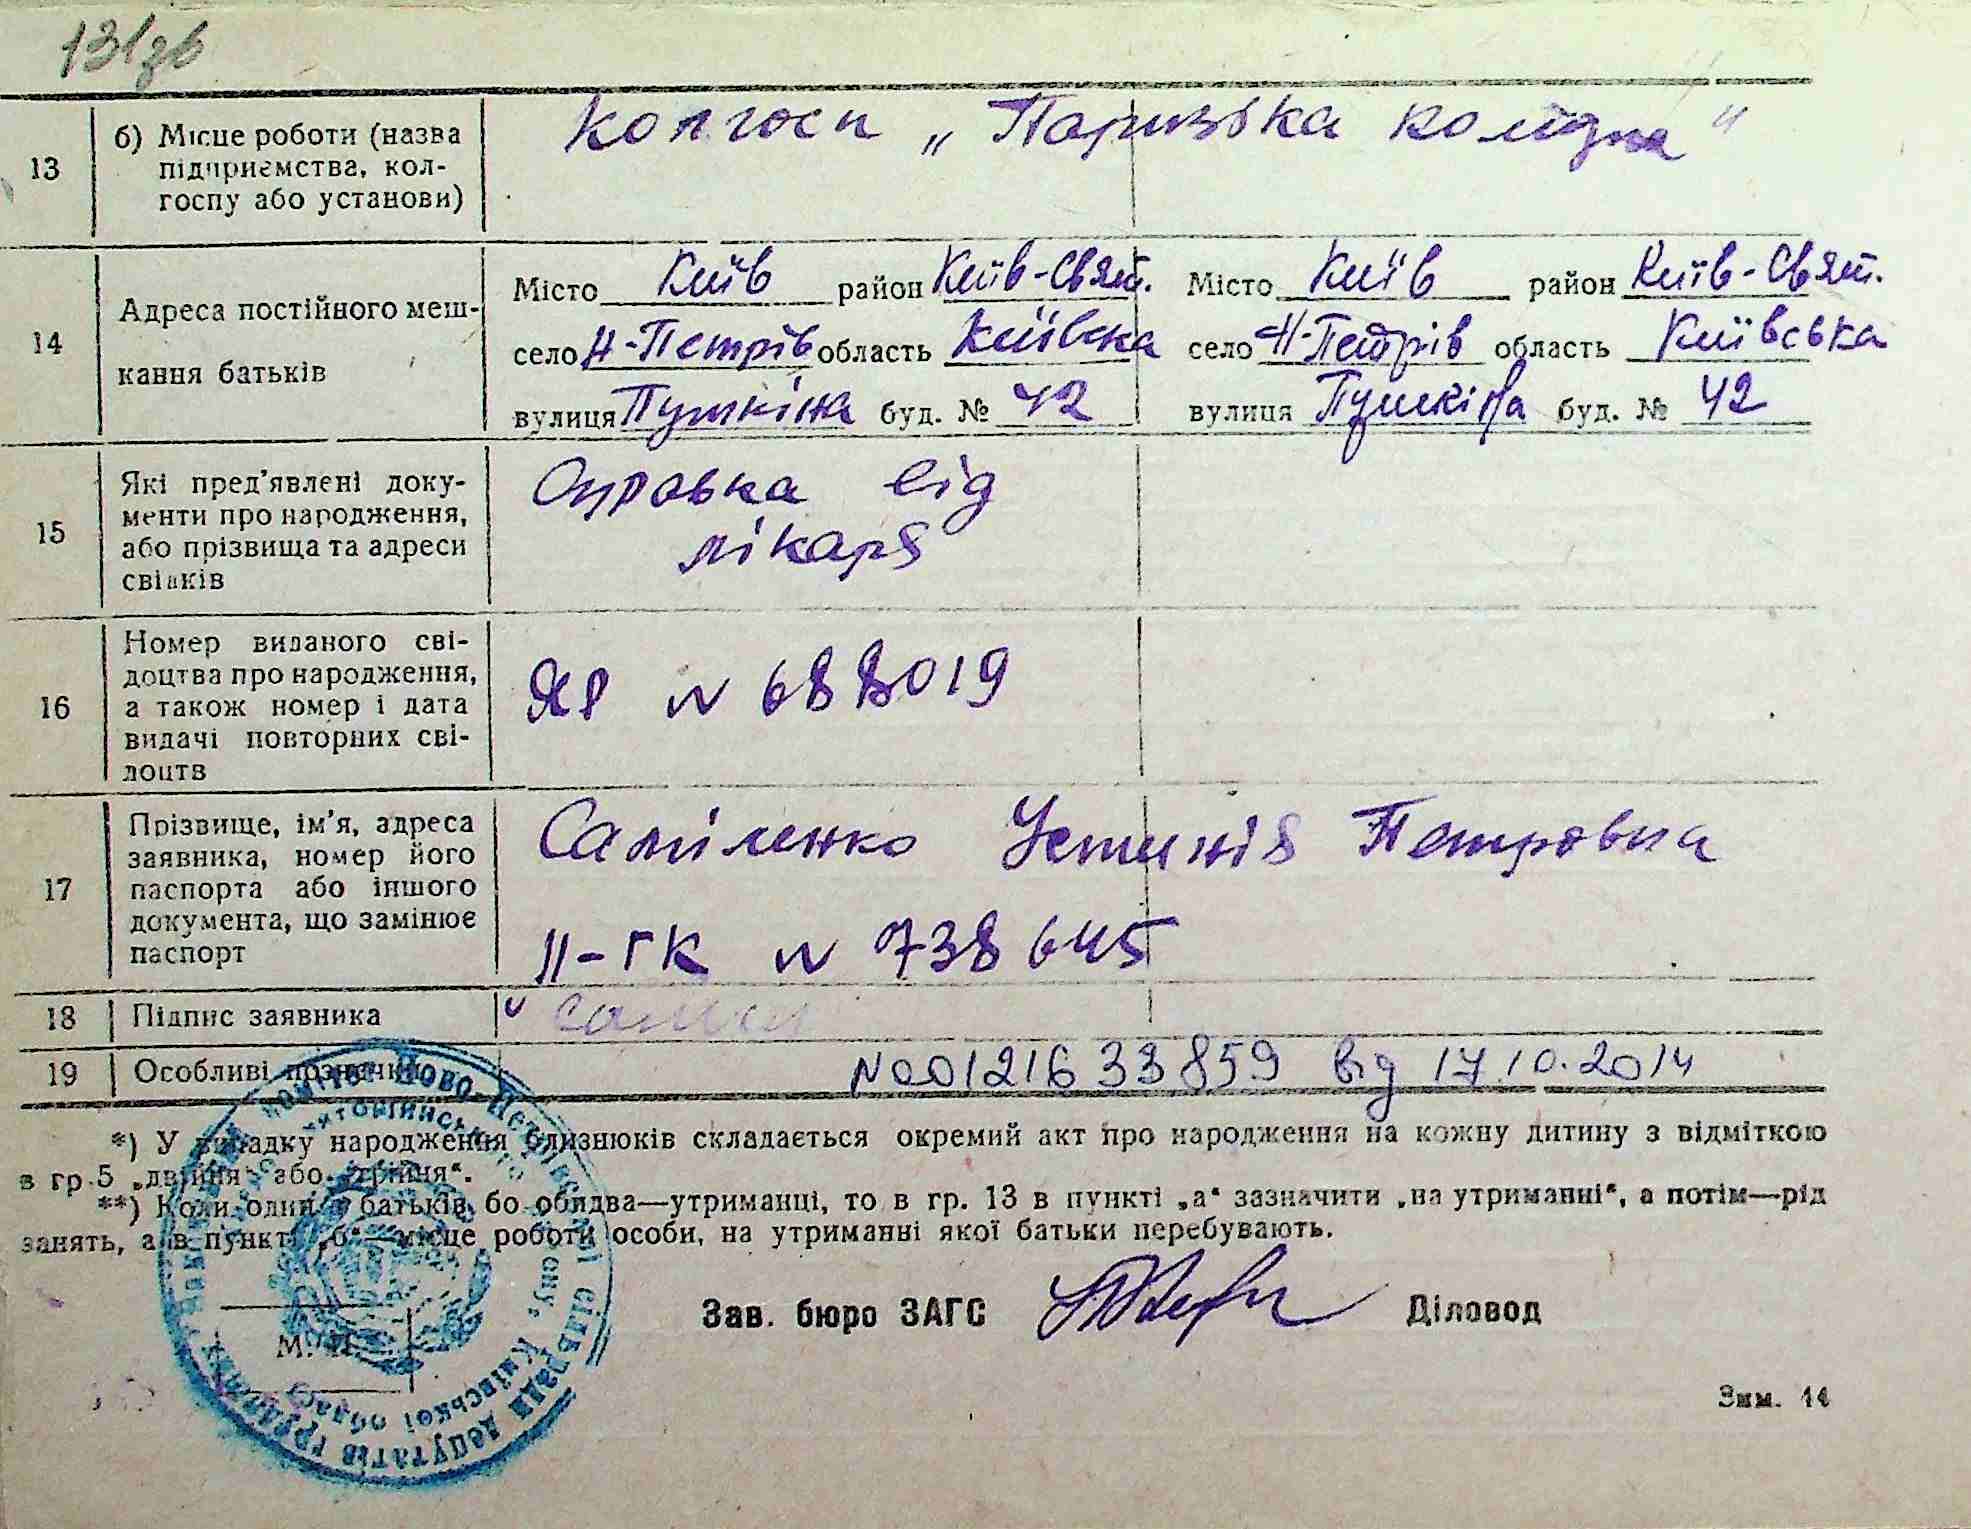 131зв
13
б) Місце роботи (назва
підприємства, кол-
госпу або установи)
Колгосп „Паризька комуна"
14
Адреса постійного меш-
кання батьків
Місто Київ район Київ-Свят. Місто Київ район Київ-Свят.
село Н-Петрів область Київська село Н-Петрів область Київська
вулиця Пушкіна буд. № 42 вулиця Пушкіна буд. № 42
15
Які пред'явлені доку-
менти про народження,
або прізвища та адреси
свідків
Справка від
лікаря
16
Номер виданого сві-
доцтва про народження,
а також номер і дата
видачі повторних сві-
доцтв
ЯР N 688019
17
Прізвище, ім'я, адреса
заявника, номер його
паспорта або іншого
документа, що замінює
паспорт
Самійленко Устинія Петровна
II-ГК N 738645
18
Підпис заявника
19
Особливі позначки
N00121633859 від 17.10.2014
*) У випадку народження близнюків складається окремий акт про народження на кожну дитину з відміткою
в гр. 5 „двійня" або „трійня".
**) Коли один з батьків, бо обидва—утриманці, то в гр. 13 в пункті „а" зазначити „на утриманні", а потім—рід
занять, а в пункті „б"—місце роботи особи, на утриманні якої батьки перебувають.
Зав. бюро ЗАГС Діловод
М. П.
Зам. 14